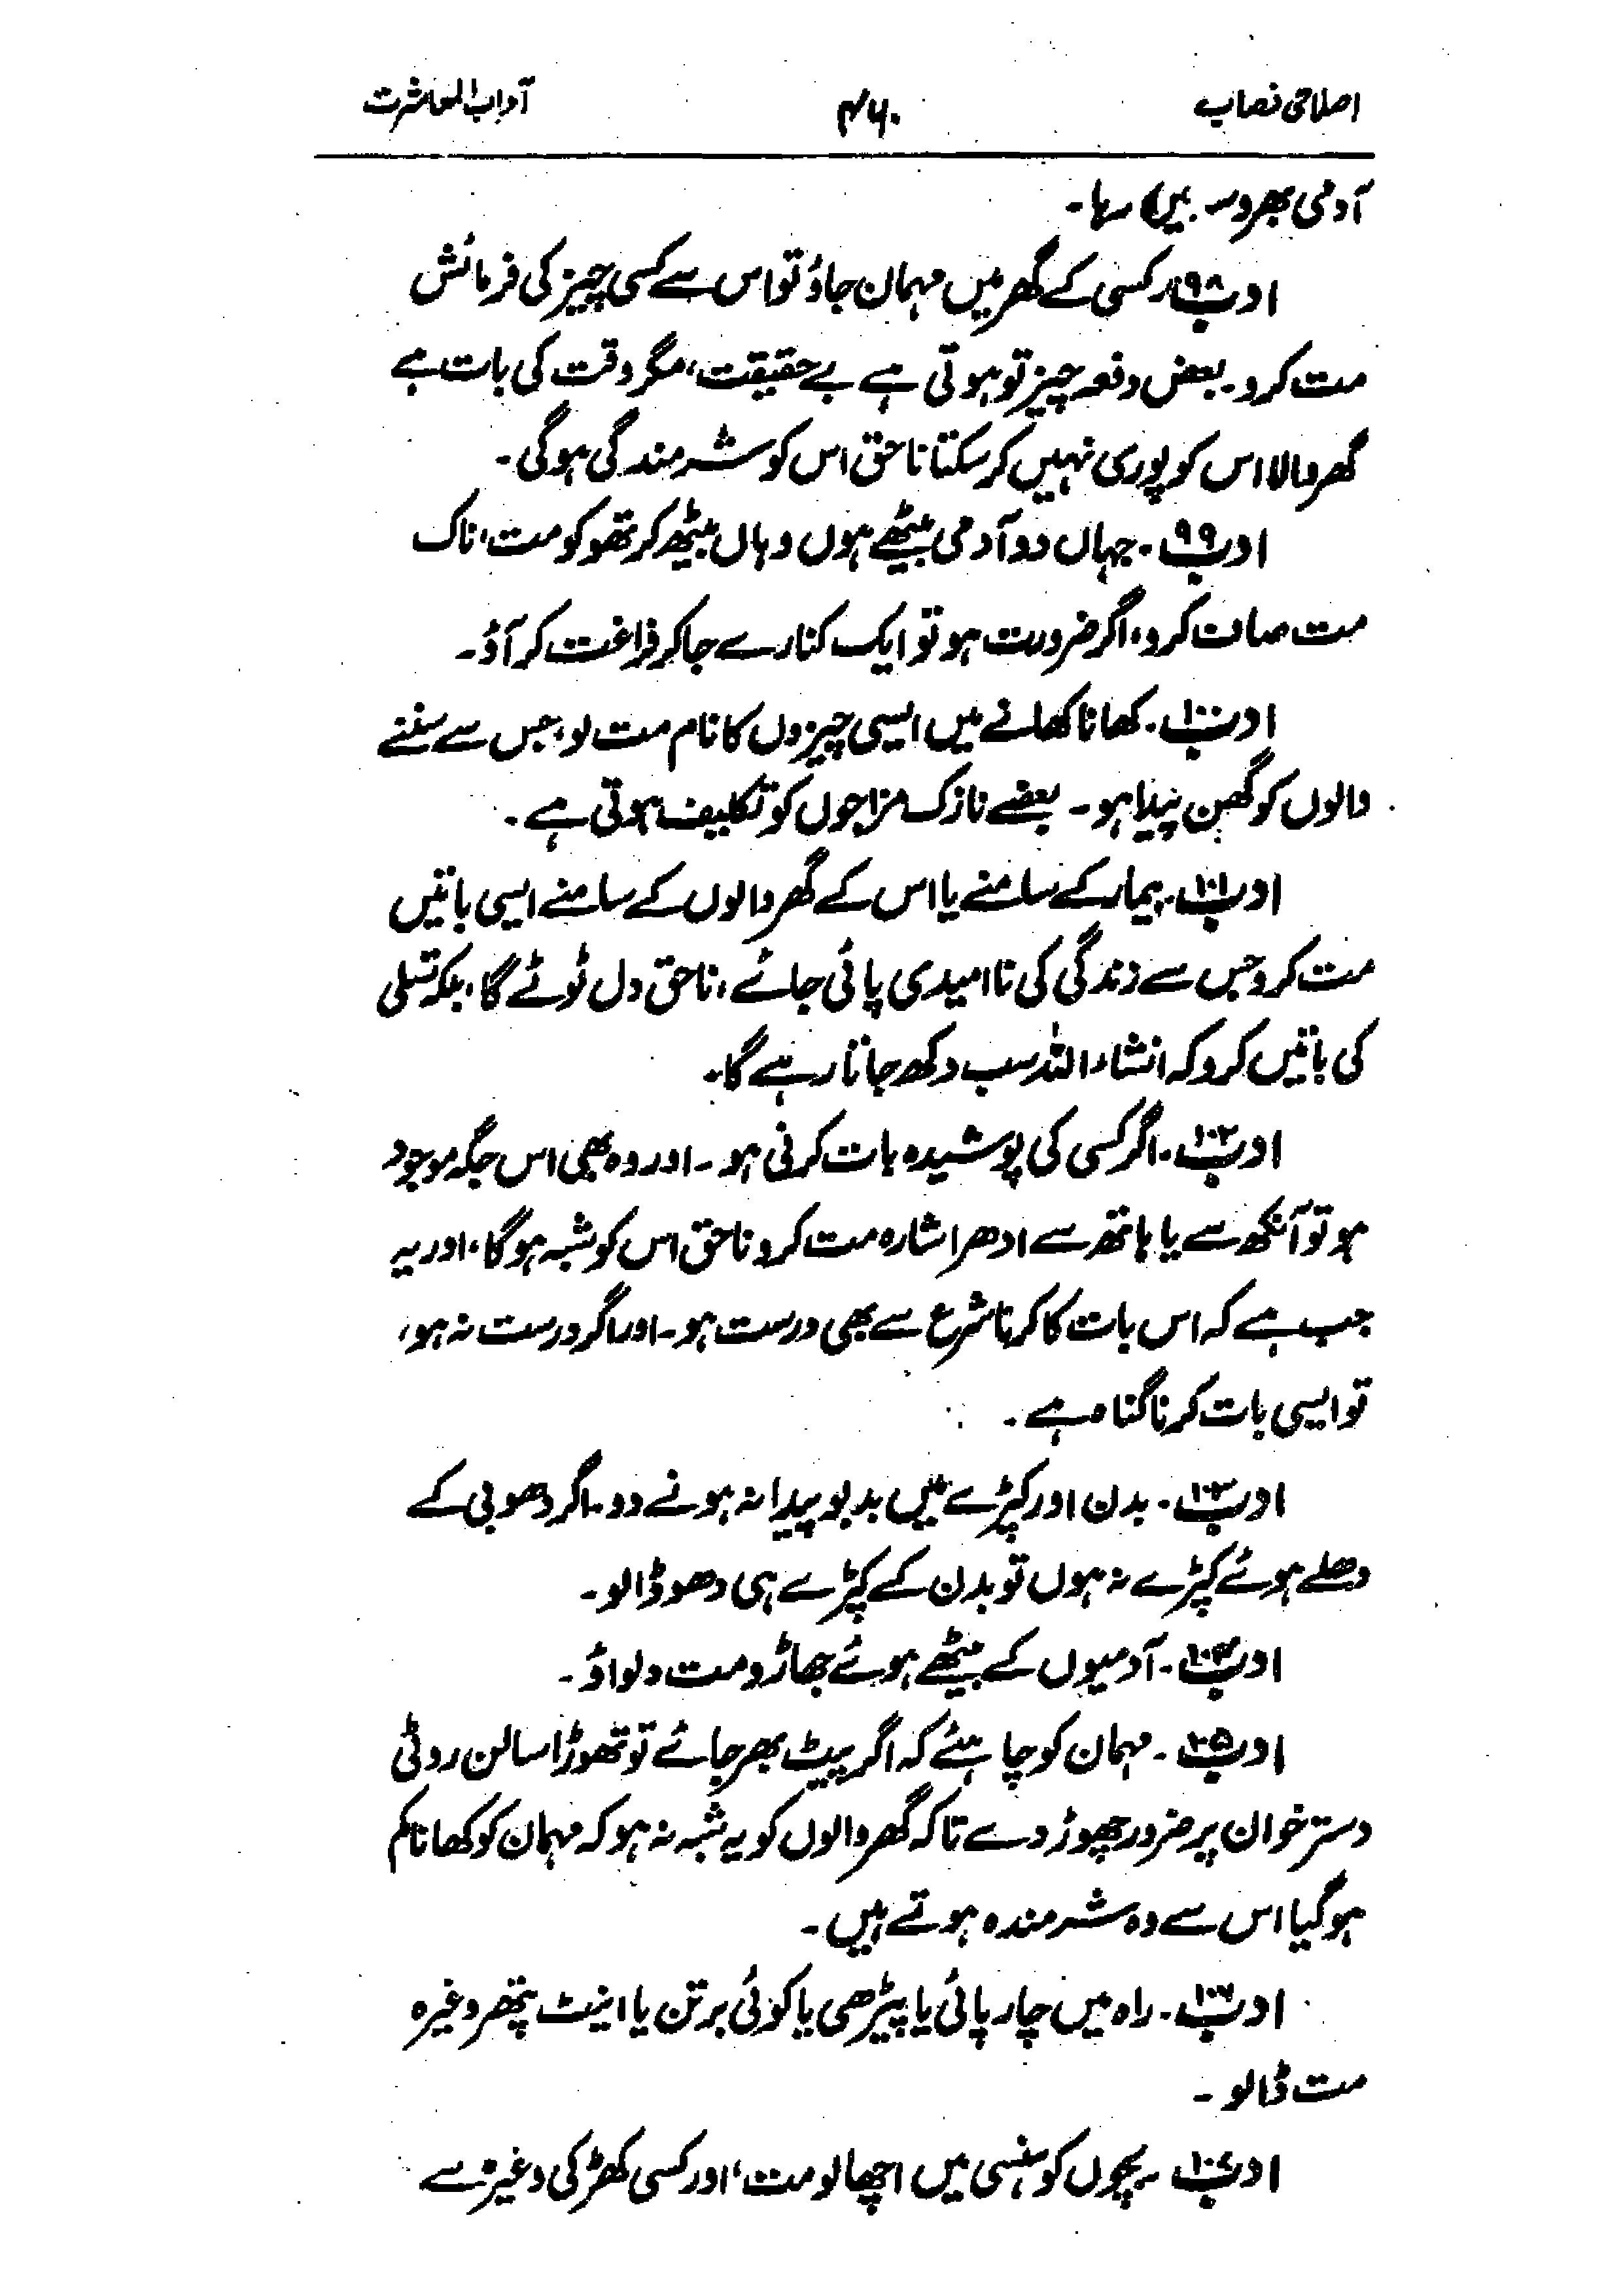 اصلاحی نصاب ۴۶۰ آداب المعاشرت
آدمی بھروسہ میں رہا۔
ادب ۹۸۔ کسی کے گھر میں مہمان جاؤ تو اس سے کسی چیز کی فرمائش
مت کرو۔ بعض دفعہ چیز تو ہوتی ہے بے حقیقت، مگر وقت کی بات ہے
گھر والا اس کو پوری نہیں کر سکتا ناحق اس کو شرمندگی ہوگی۔
ادب ۹۹۔ جہاں دو آدمی بیٹھے ہوں وہاں بیٹھ کر تھوکو مت، ناک
مت صاف کرو، اگر ضرورت ہو تو ایک کنارے جا کر فراغت کر آؤ۔
ادب ۱۰۰۔ کھانا کھانے میں ایسی چیزوں کا نام مت لو، جس سے سننے
والوں کو گھن پیدا ہو۔ بعضے نازک مزاجوں کو تکلیف ہوتی ہے۔
ادب ۱۰۱۔ بیمار کے سامنے یا اس کے گھر والوں کے سامنے ایسی باتیں
مت کرو جس سے زندگی کی ناامیدی پائی جائے، ناحق دل ٹوٹے گا، بلکہ تسلی
کی باتیں کرو کہ انشاء اللہ سب دکھ جاتا رہے گا۔
ادب ۱۰۲۔ اگر کسی کی پوشیدہ بات کرنی ہو۔ اور وہ بھی اس جگہ موجود
ہو تو آنکھ سے یا ہاتھ سے ادھر اشارہ مت کرو ناحق اس کو شبہ ہوگا، اور یہ
جب ہے کہ اس بات کا کرنا شرع سے بھی درست ہو۔ اور اگر درست نہ ہو،
تو ایسی بات کرنا گناہ ہے۔
ادب ۱۰۳۔ بدن اور کپڑے میں بدبو پیدا نہ ہونے دو۔ اگر دھوبی کے
دھلے ہوئے کپڑے نہ ہوں تو بدن کے کپڑے ہی دھو ڈالو۔
ادب ۱۰۴۔ آدمیوں کے بیٹھے ہوئے جھاڑو مت دلواؤ۔
ادب ۱۰۵۔ مہمان کو چاہئے کہ اگر پیٹ بھر جائے تو تھوڑا سالن روٹی
دستر خوان پر ضرور چھوڑ دے تاکہ گھر والوں کو یہ شبہ نہ ہو کہ مہمان کو کھانا کم
ہو گیا اس سے وہ شرمندہ ہوتے ہیں۔
ادب ۱۰۶۔ راہ میں چارپائی یا پیڑھی یا کوئی برتن یا اینٹ پتھر وغیرہ
مت ڈالو۔
ادب ۱۰۷۔ بچوں کو ہنسی میں اچھالو مت، اور کسی کھڑکی وغیرہ سے